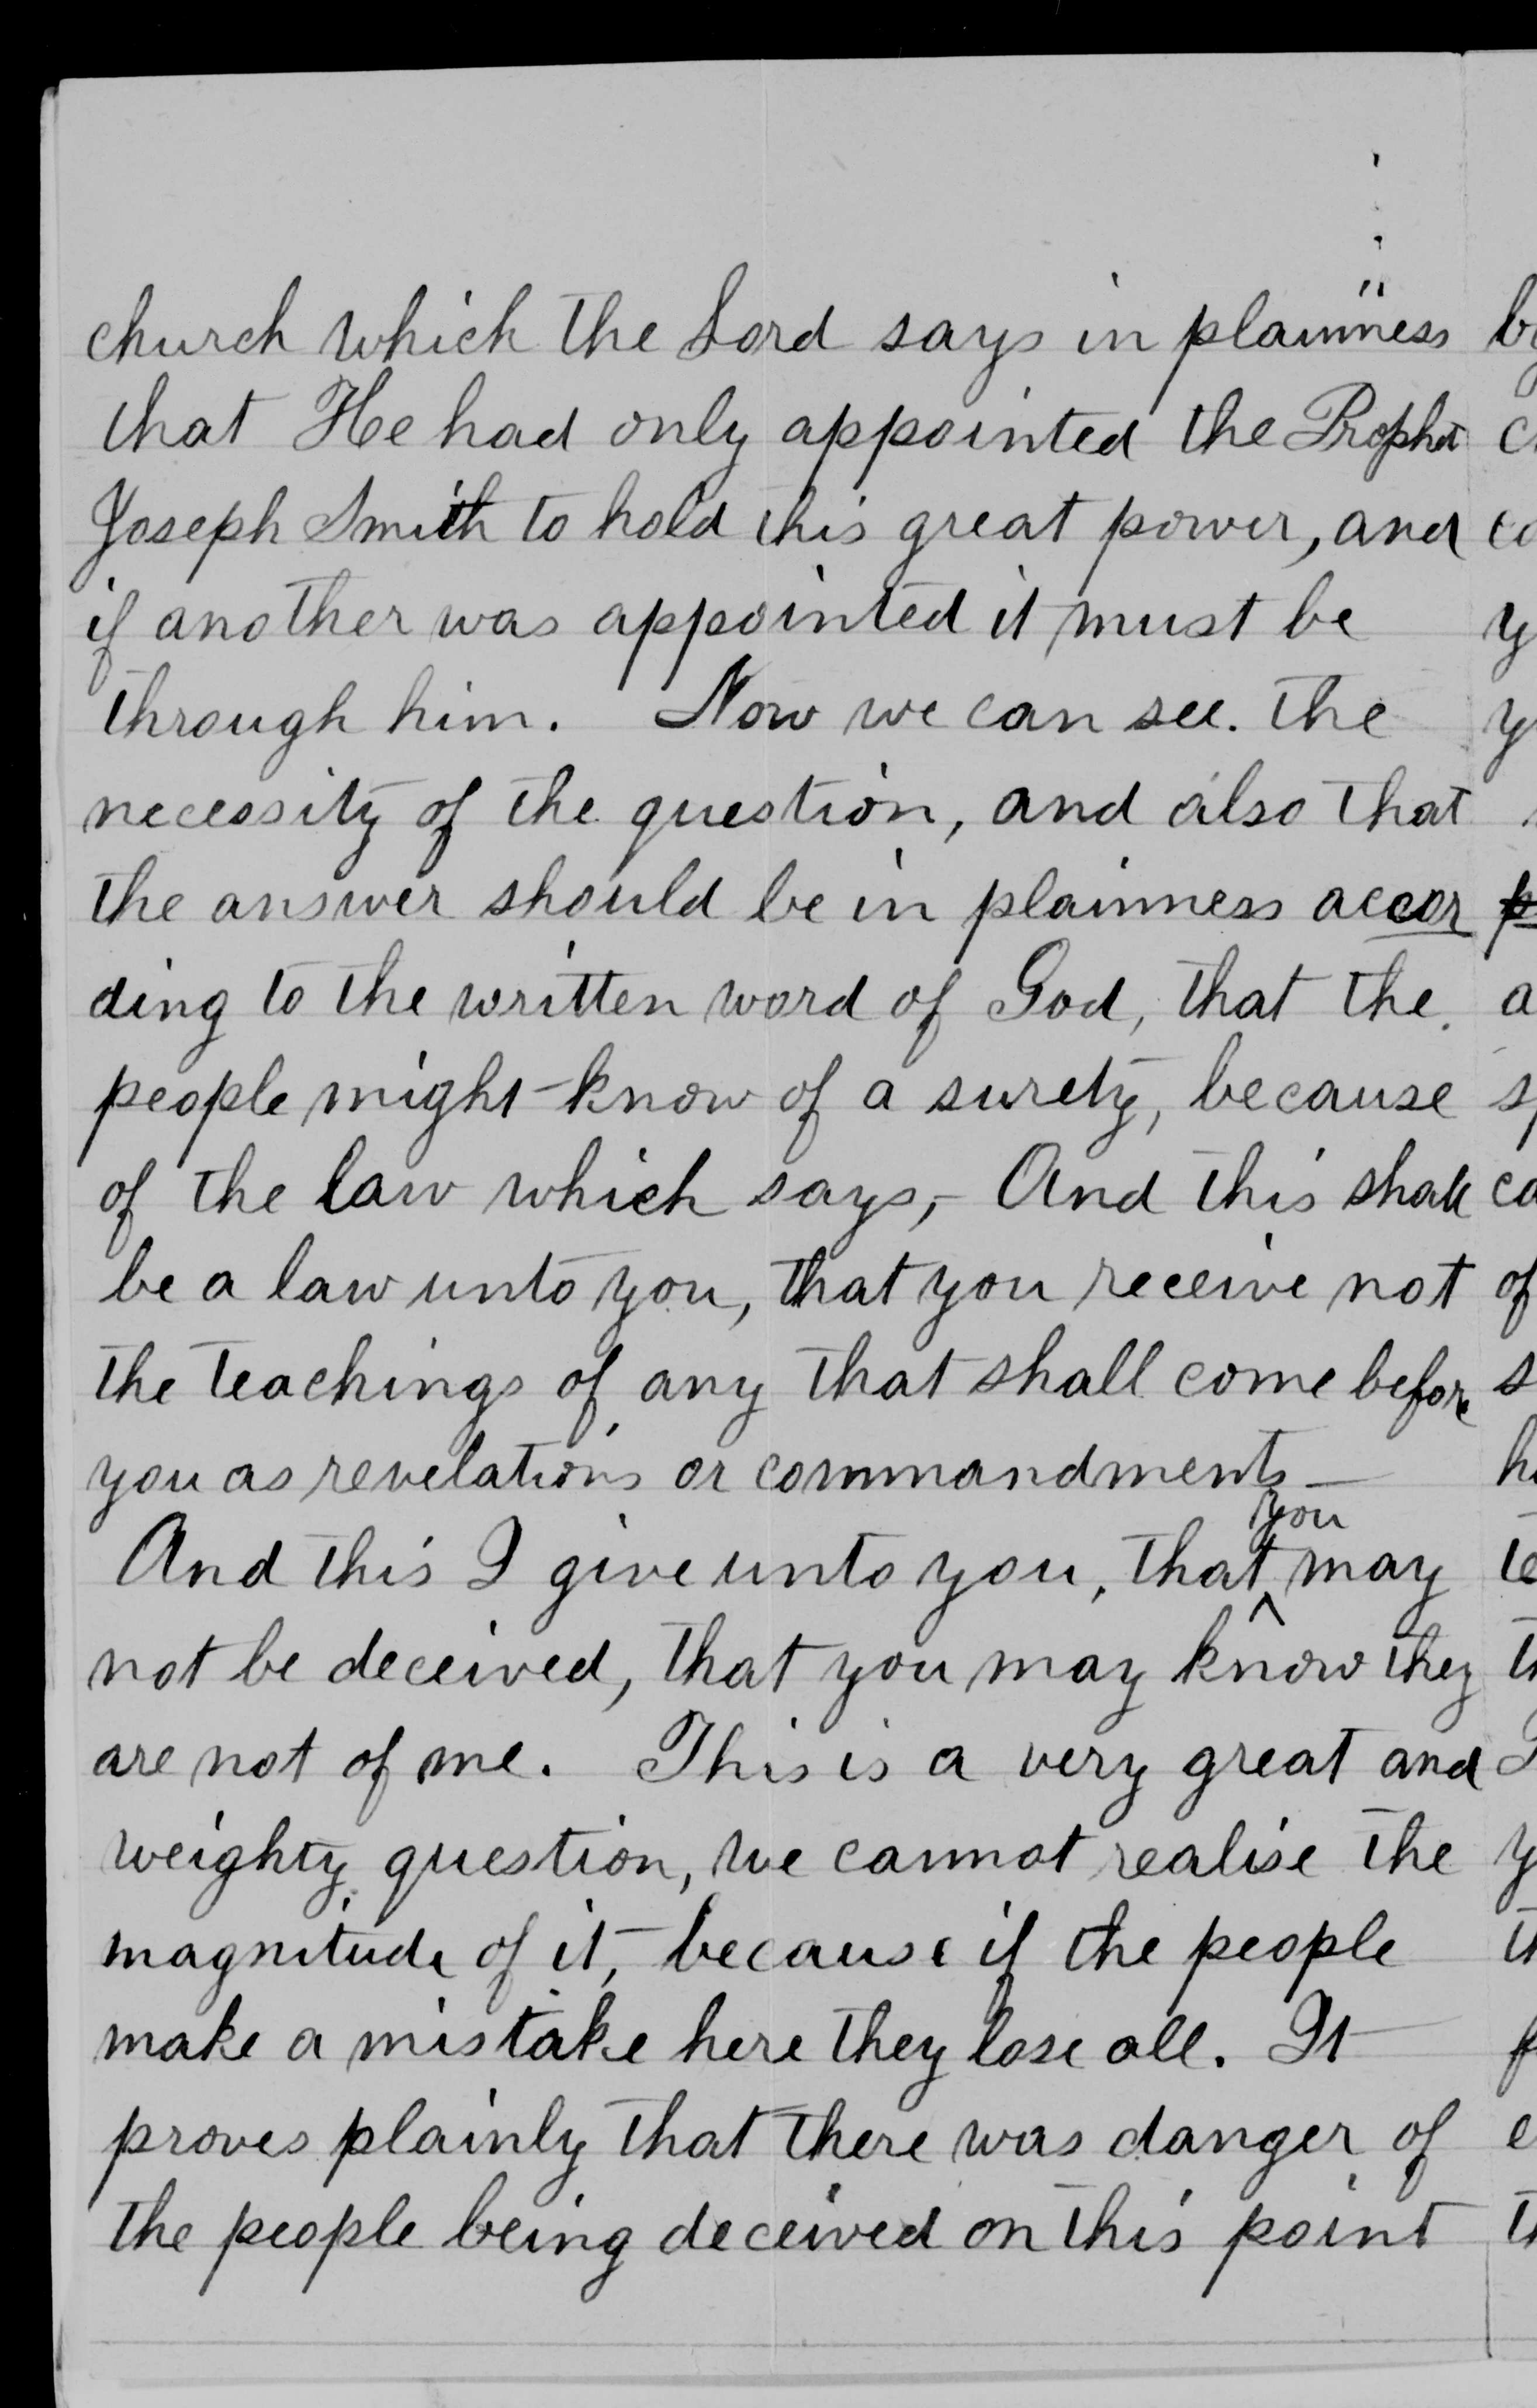 church which the Lord says in plainness
that He had only appointed the Prophet
Joseph Smith to hold this great power, and
if another was appointed it must be
through him. Now we can see. the
necessity of the question, and also that
the answer should be in plainness accor
ding to the written word of God, that the
people might know of a surety, because
of the law which says,- And this shall
be a law unto you, that you receive not
the teachings of any that shall come before
you as revelations or commandments—
you
And this I give unto you, that ^ may
not be deceived, that you may know they
are not of me. This is a very great and
weighty question, we cannot realise the
magnitude of it, because if the people
make a mistake here they lose all. It
proves plainly that there was danger of
the people being deceived on this point